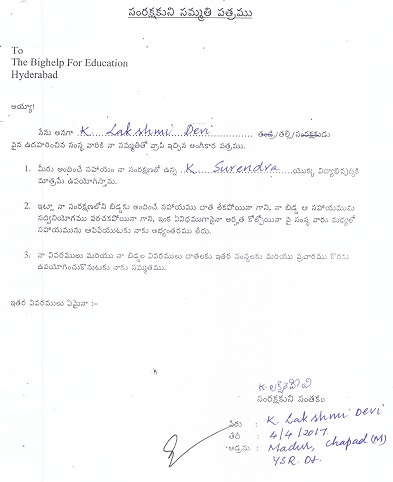 సంరక్షకుని సమ్మతి పత్రము
To
The Bighelp For Education
Hyderabad
అయ్యా!
నేను అనగా K. Lakshmi Devi తండ్రి/తల్లి/సంరక్షకుడు
పైన ఉదహరించిన సంస్థ వారికి నా సమ్మతితో వ్రాసి ఇచ్చిన అంగీకార పత్రము.
1. మీరు అందించే సహాయం నా సంరక్షణలో ఉన్న K Surendra యొక్క విద్యాభివృద్ధికి
మాత్రమే ఉపయోగిస్తాను.
2. ఇట్లా నా సంరక్షణలోని బిడ్డకు అందించే సహాయము దాత లేకపోయినా గాని, నా బిడ్డ ఆ సహాయమును
సద్వినియోగము పరచకపోయినా గాని, ఇంక ఏవిధముగానైనా అర్హత కోల్పోయినా పై సంస్థ వారు మధ్యలో
సహాయమును ఆపివేయుటకు నాకు అభ్యంతరము లేదు.
3. నా వివరములు మరియు నా బిడ్డల వివరములు దాతలకు ఇతర సంస్థలకు మరియు ప్రచారము కొరకు
ఉపయోగించుకొనుటకు నాకు సమ్మతము.
ఇతర వివరములు ఏమైనా :-
K. లక్ష్మిదేవి
సంరక్షకుని సంతకం
పేరు : K Lakshmi Devi
తేది : 4/4/2017.
అడ్రసు : Madur, Chapad (M)
YSR Dt.